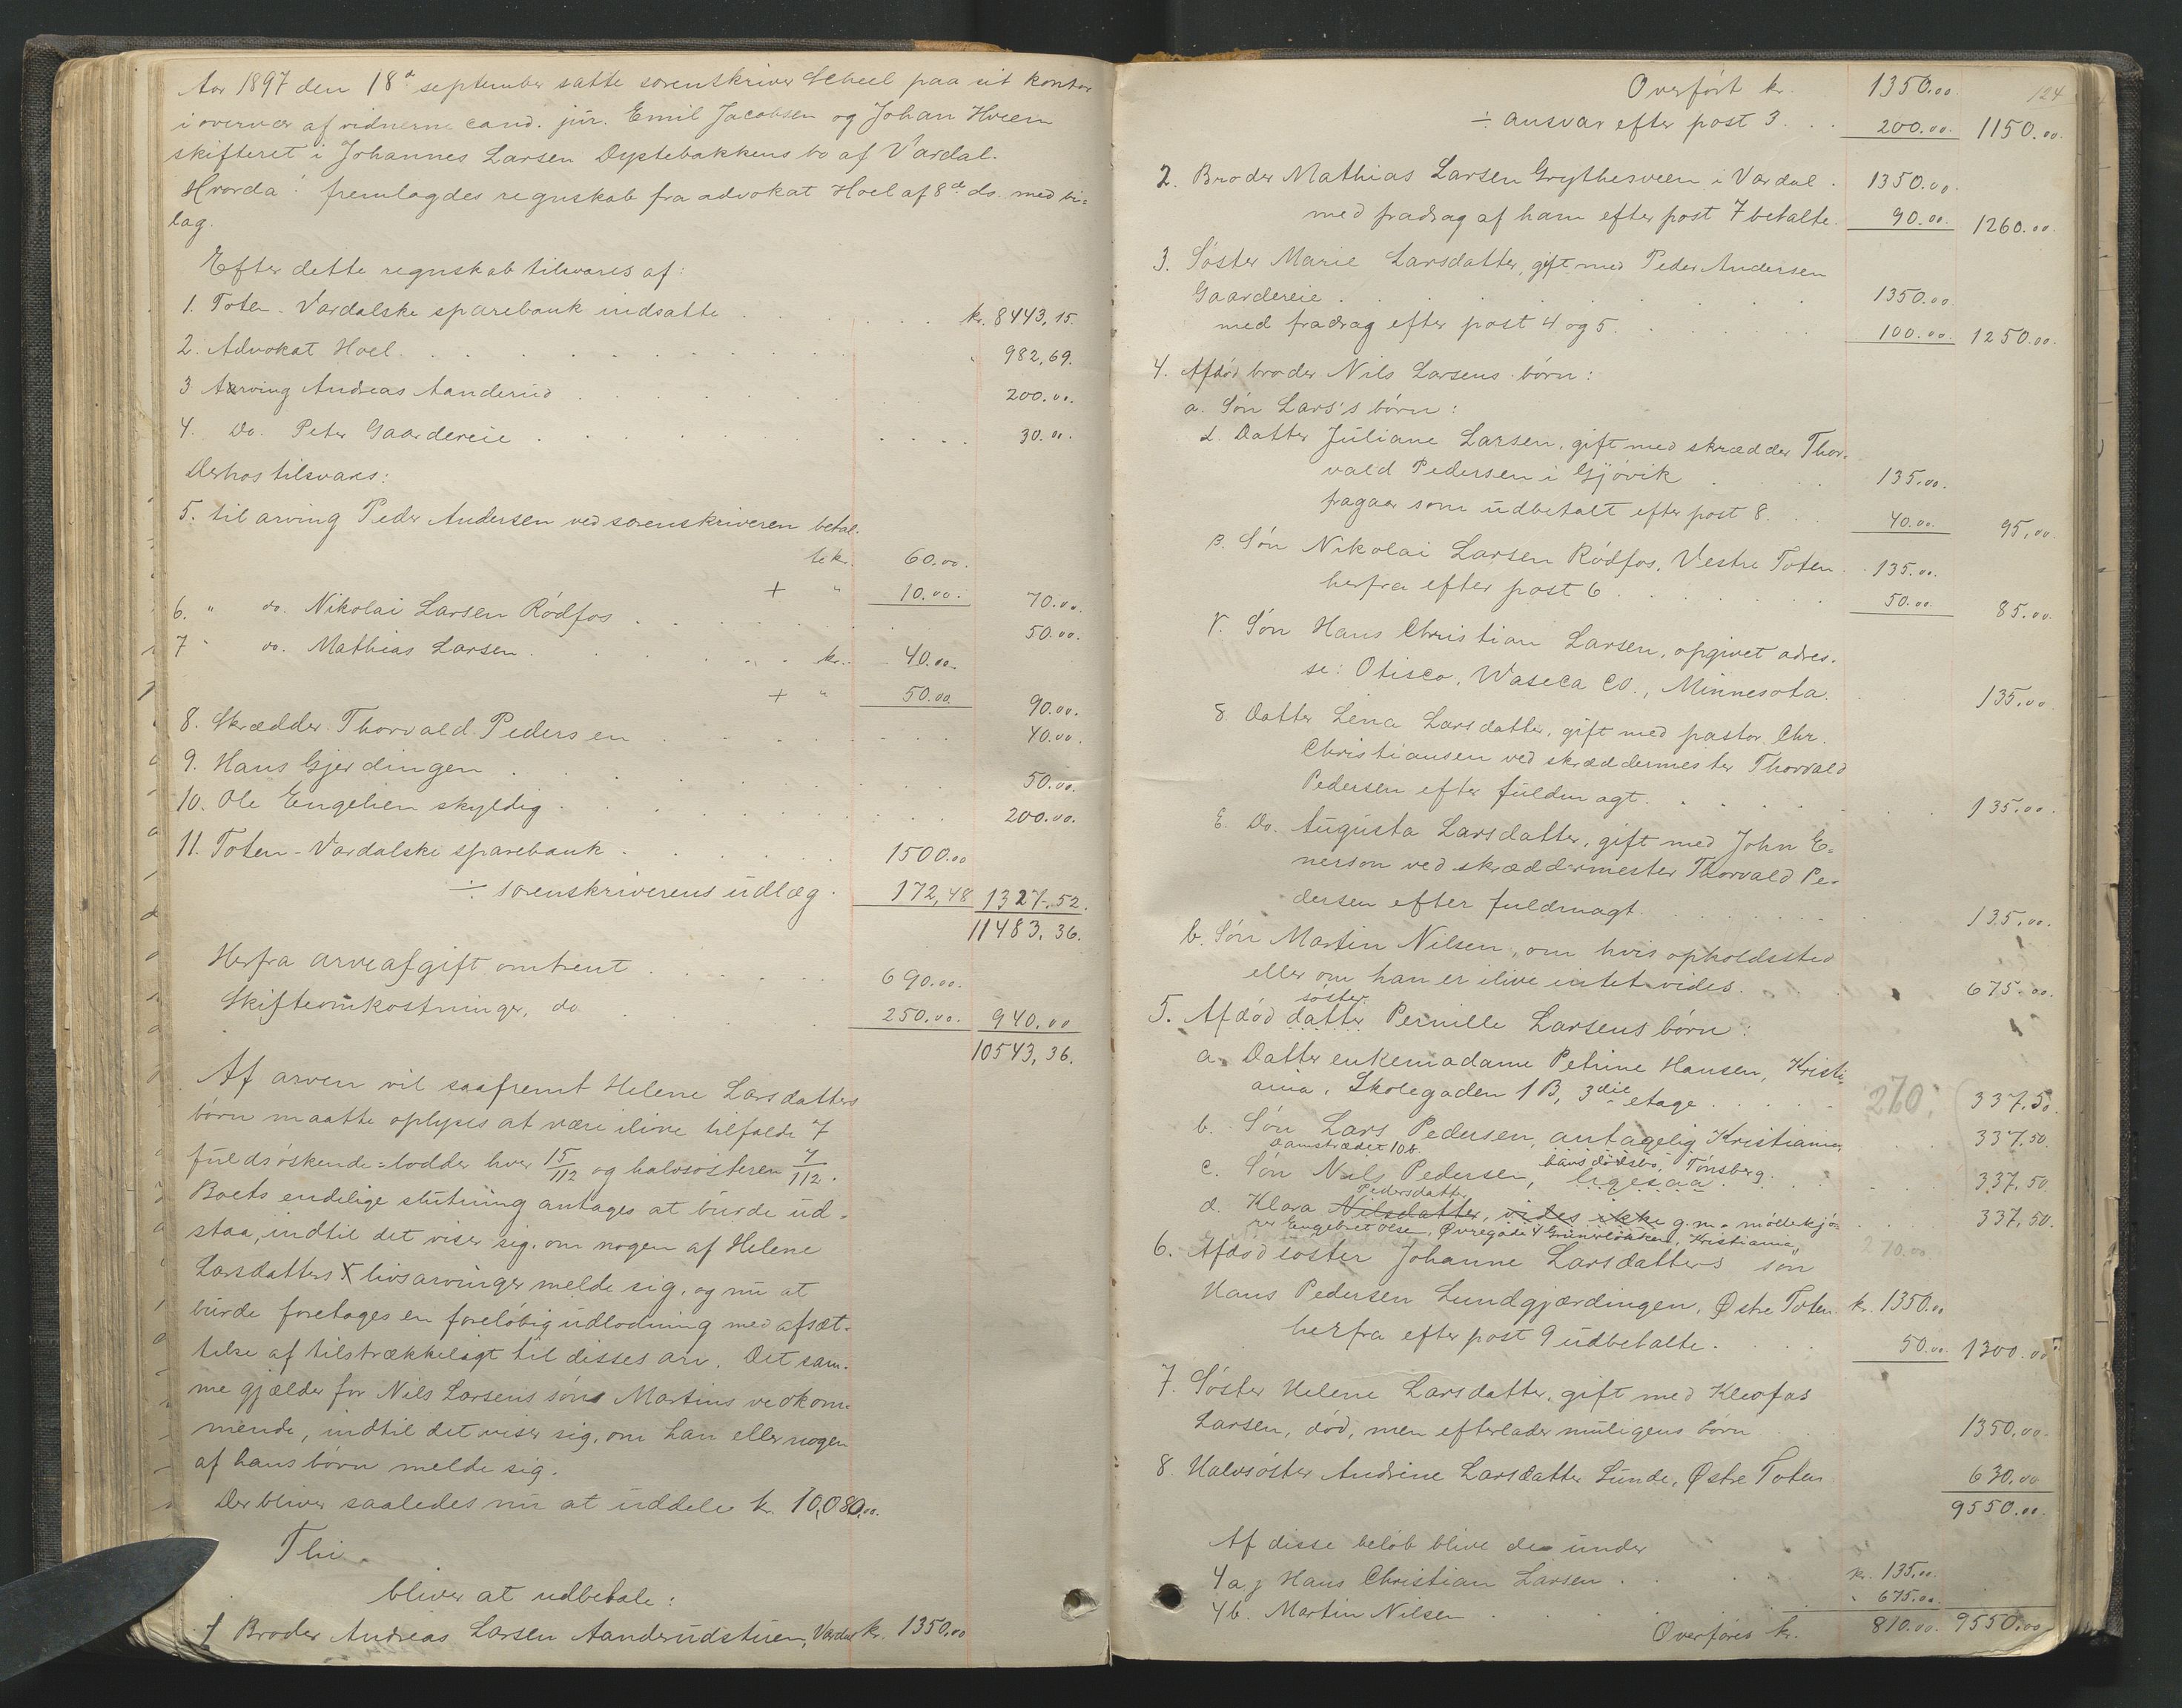 Aar 1897 den 18de september satte sorenskriver Scheel paa sit kontor
i overvær af vidnerne cand. jur. Emil Jacobsen og Johan Hveem
skifteret i Johannes Larsen Dystebakkens bo af Vardal.
Hvorda: fremlagdes regnskab fra advokat Hoel af 8de ds. med bi=
lag.
Efter dette regnskab tilsvares af:
1. Toten-Vardalske sparebank indsatte kr. 8443,15.
2. Advokat Hoel 982,69.
3 Arving Andreas Aanderud 200.00.
4. Do. Peter Gaardereie 30.00.
Derhos tilsvares:
5. til arving Peder Andersen ved sorenskriveren betal-
te kr. 60.00.
+ " 10.00. 70.00.
6. " do. Nikolai Larsen Rödfos 50.00.
7 " do. Mathias Larsen kr. 40.00.
+ " 50.00 90.00.
8. Skrædder Thorvald Pedersen 40.00.
9. Hans Gjerdingen 50.00.
10. Ole Engelien skyldig 200.00.
11. Toten-Vardalske sparebank 1500.00
÷ sorenskriverens udlæg 172,48 1327.52.
11483,36.
Herfra arveafgift omtrent 690.00.
Skifteomkostninger, do 250.00. 940.00
10543,36.
Af arven vil saafremt Helene Larsdatters
børn maatte oplyses at være ilive tilfalde 7
fuldsöskende=lodder hver 15/112 og halvsösteren 7/112.
Boets endelige slutning antages at burde ud=
staa, indtil det viser sig, om nogen af Helene
Larsdatters livsarvinger melde sig, og nu at
burde foretages en foreløbig udlodning med afsæt-
telse af tilstrækkeligt til disses arv. Det sam-
me gjælder for Nils Larsens søns Martins vedkom-
mende, indtil det viser sig, om han eller nogen
af hans børn melde sig.
Der bliver saaledes nu at uddele kr. 10,080.00.
Thi
bliver at udbetale:
1 Broder Andreas Larsen Aanderudstuen, Vardal kr. 1350.00
124
Overført kr. 1350.00.
÷ ansvar efter post 3. 200.00. 1150.00.
2. Broder Mathias Larsen Grythesveen i Vardal 1350.00.
med fradrag af ham efter post 7 betalte 90.00. 1260.00.
3. Söster Marie Larsdatter, gift med Peder Andersen
Gaardereie 1350.00.
med fradrag efter post 4 og 5. 100.00. 1250.00.
4. Afdöd broder Nils Larsens börn:
a. Sön Lars's börn:
α. Datter Juliane Larsen, gift med skrædder Thor-
vald Pedersen i Gjøvik 135.00.
fragaar som udbetalt efter post 8. 40.00. 95.00.
β. Sön Nikolai Larsen Rödfos, Vestre Toten 135.00.
herfra efter post 6 50.00. 85.00.
γ. Sön Hans Christian Larsen, opgivet adres-
se: Otisco, Waseca Co., Minnesota. 135.00.
δ Datter Lina Larsdatter, gift med pastor Chr.
Christiansen ved skræddermester Thorvald
Pedersen efter fuldmagt. 135.00.
ε. Do. Augusta Larsdatter, gift med John E-
nerson ved skræddermester Thorvald Pe-
dersen efter fuldmagt. 135.00.
b. Sön Martin Nilsen, om hvis opholdssted
eller om han er ilive intet vides. 675.00.
söster
5. Afdöd datter Pernille Larsens börn:
a. Datter enkemadame Petrine Hansen, Kristi-
ania, Skolegaden 1 B, 3die etage 270. 337.50.
b. Sön Lars Pedersen, antagelig Kristiania, 337.50.
Damstrædet 10b. hans dödsbo, Tönsberg.
c. Sön Nils Pedersen, ligesaa 337.50.
Pedersdatter
d. Klara Nilsdatter, vides ikke g.m. möllekjö- 337.50.
rer Engebret Olsen, Øvregade 4 Grünerløkken, Kristiania
270.00.
6. Afdöd söster Johanne Larsdatters sön
Hans Pedersen Lundgjærdingen, Østre Toten kr. 1350.00
herfra efter post 9 udbetalte 50.00. 1300.00
7. Söster Helene Larsdatter, gift med Kleofas
Larsen, död, men efterlader muligens börn 1350.00.
8. Halvsöster Andrine Larsdatter Lunde, Østre Toten 630.00
9550.00.
Af disse belöb blive de under
4 a γ Hans Christian Larsen kr. 135.00.
4 b. Martin Nilsen " 675.00.
Overføres kr. 810.00. 9550.00